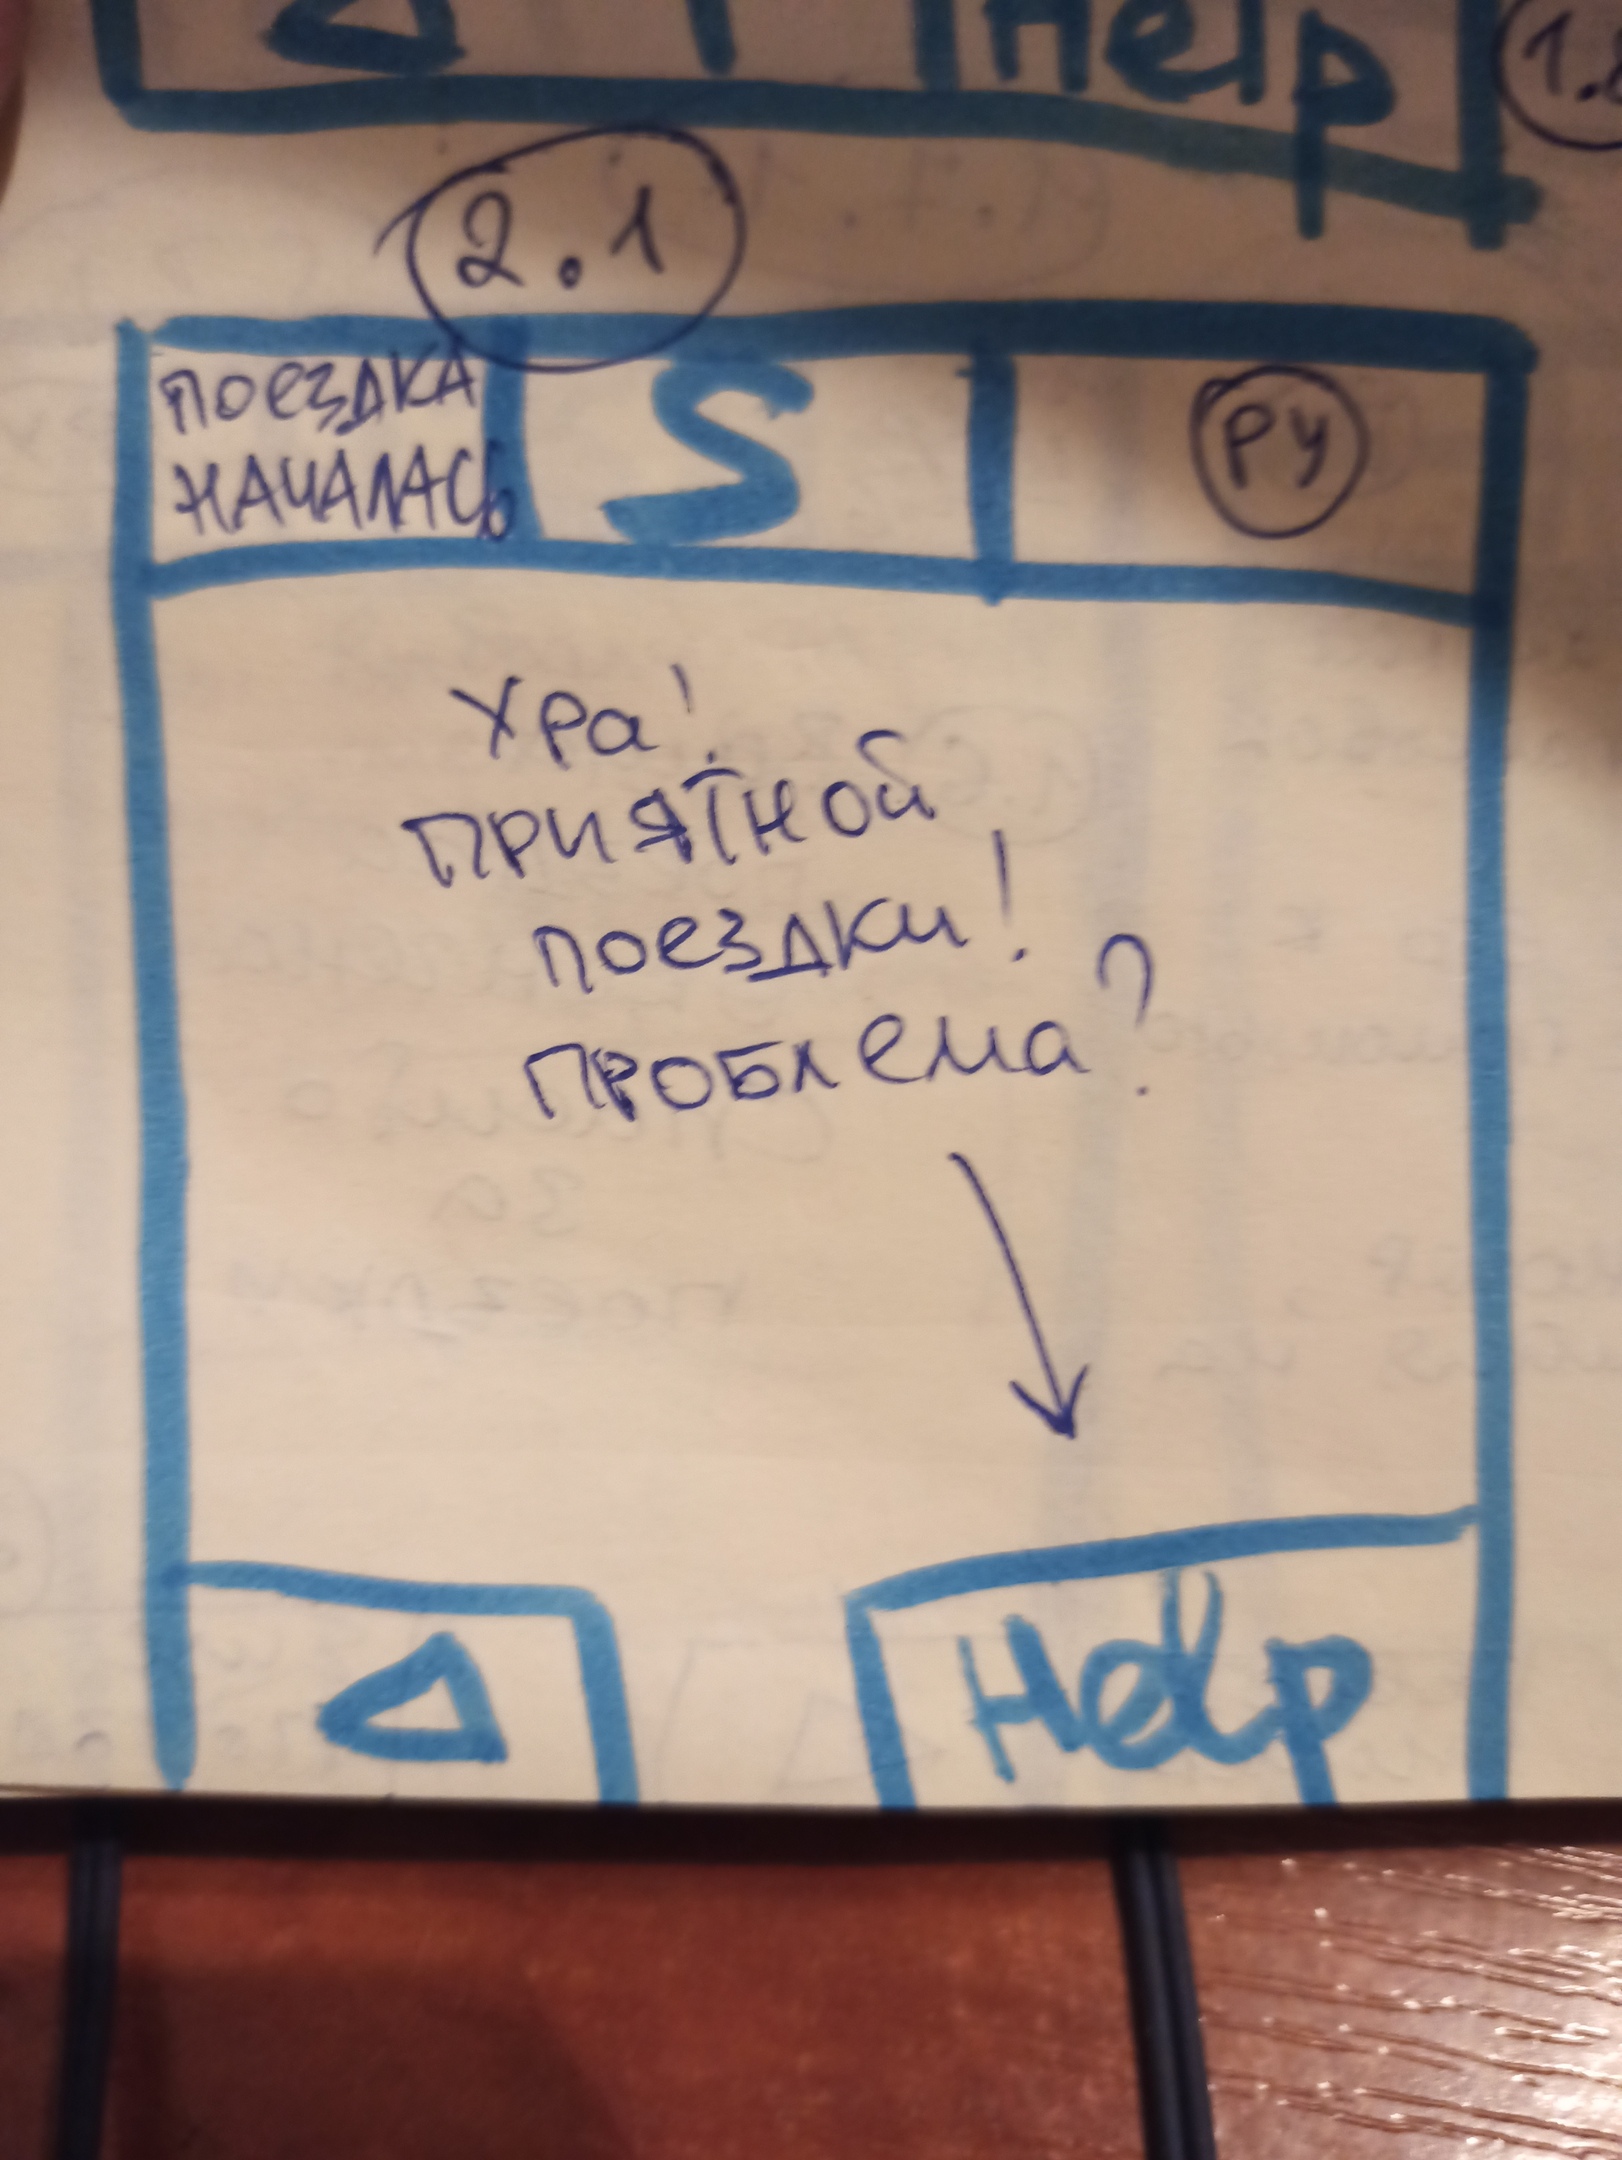 Help
1.
2.1
ПОЕЗДКА
НАЧАЛАСЬ
S
РУ
Ура!
ПРИЯТНОЙ
ПОЕЗДКИ!
ПРОБЛЕМА?
Help